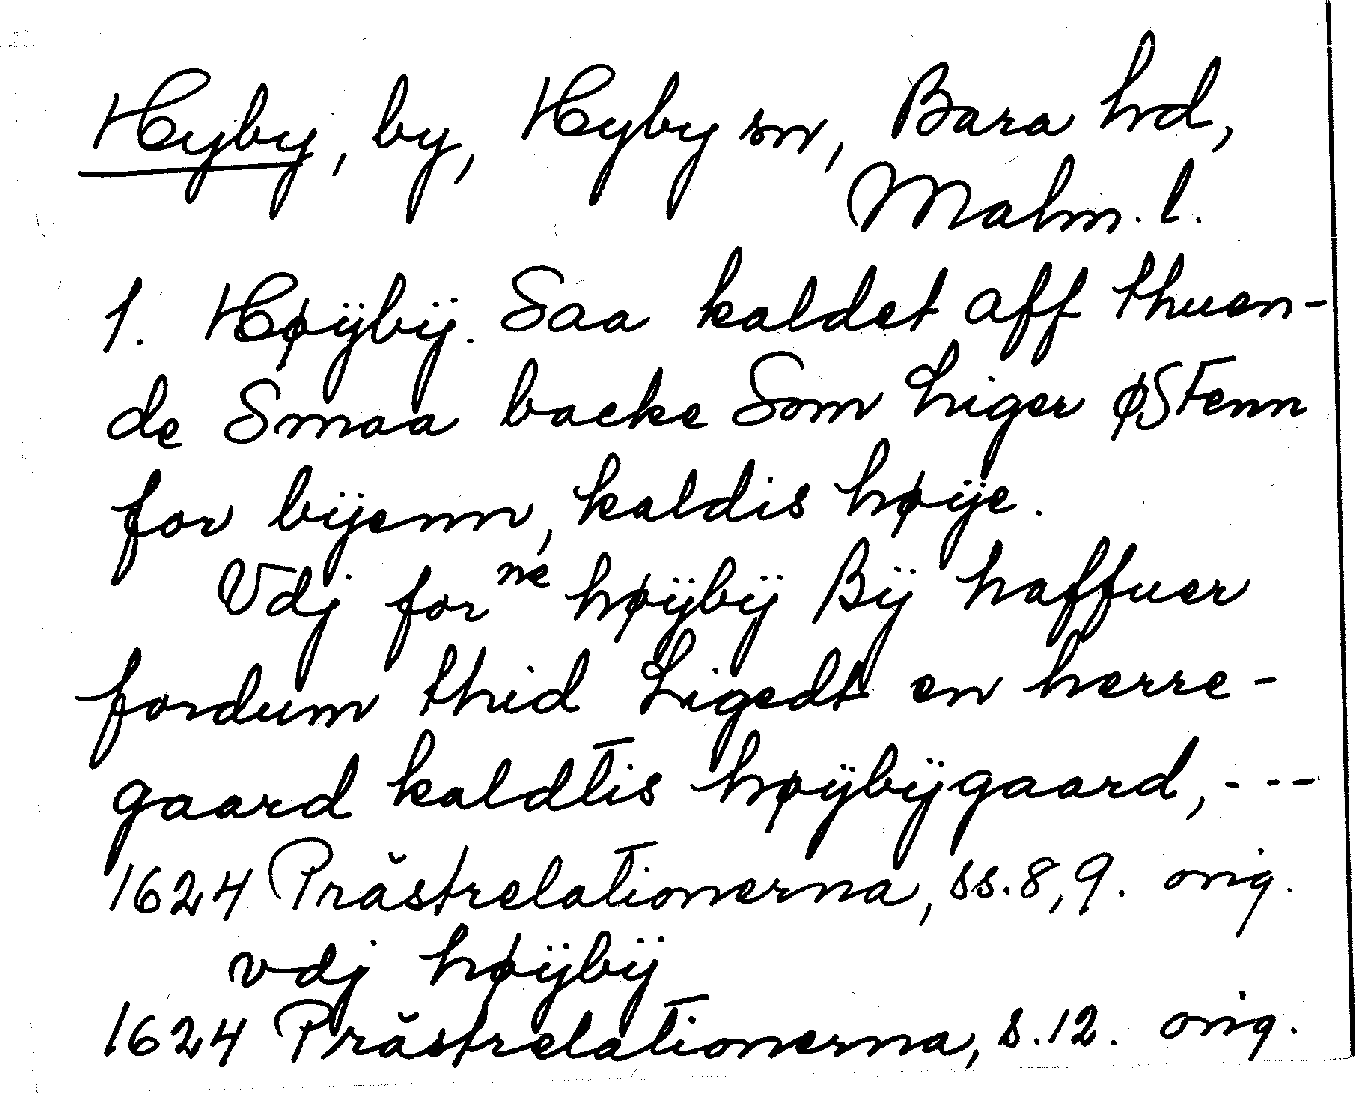 Hyby, by, Hyby sn, Bara hd,
Malm. l.
1. Høÿbÿ. Saa kaldet aff thuen-
de Smaa backe Som Liger østenn
for bÿenn, kaldis høÿe.
Vdj for ne høÿbÿ Bÿ haffuer
fordum thid Ligedt en herre-
gaard kaldtis høÿbÿgaard, - - -
1624 Prästrelationerna, ss. 8, 9. orig.
vdj høÿbÿ
1624 Prästrelationerna, s. 12. orig.